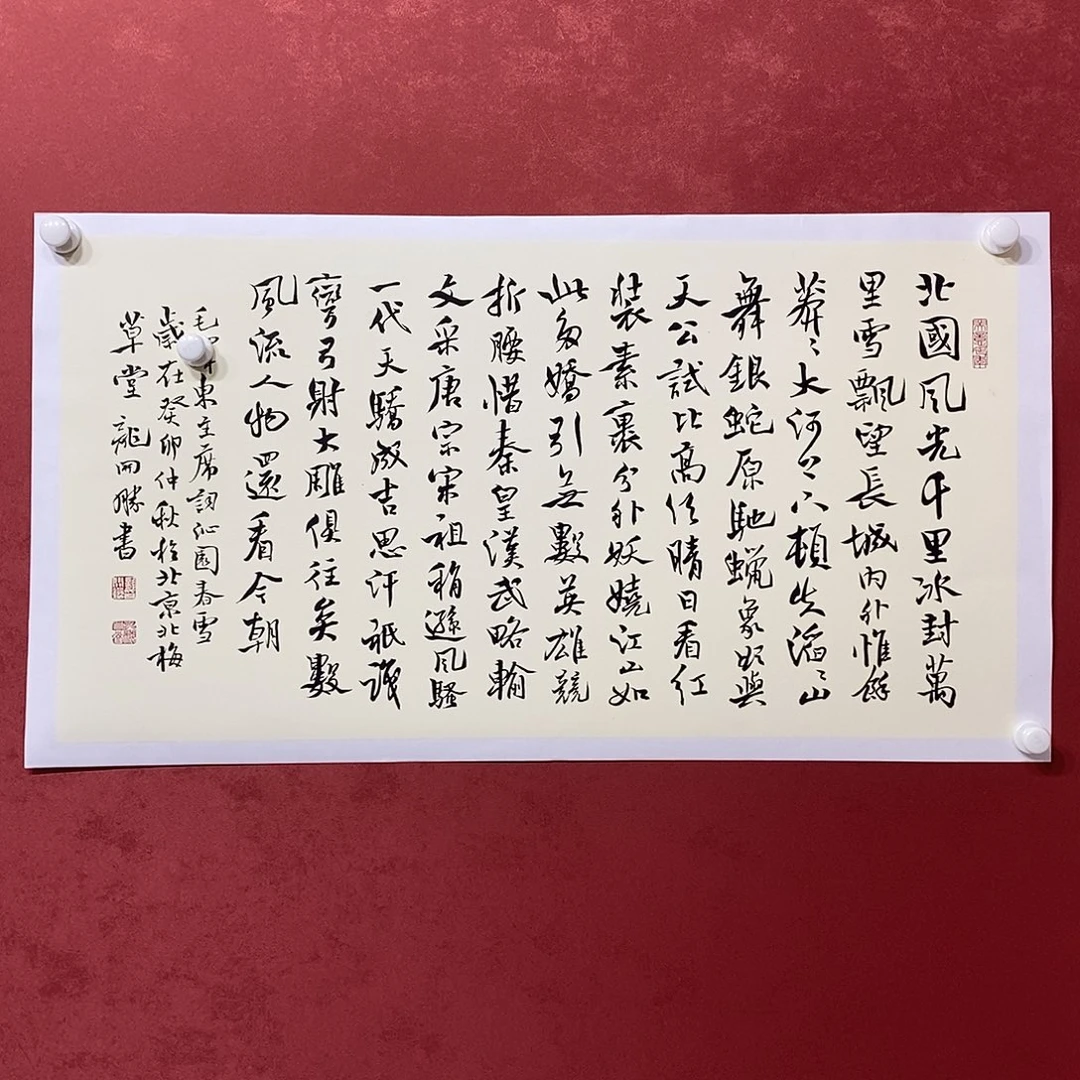 北國風光千里冰封萬
里雪飄望長城内外惟餘
莽〻大河上下頓失滔〻山
舞銀蛇原馳蠟象欲與
天公試比高須晴日看紅
裝素裹分外妖嬈江山如
此多嬌引無數英雄競
折腰惜秦皇漢武略輸
文采唐宗宋祖稍遜風騷
一代天驕成吉思汗祇識
彎弓射大雕俱往矣數
風流人物還看今朝
毛澤東主席詞沁園春雪
歲在癸卯仲秋於北京北梅
草堂龍開勝書